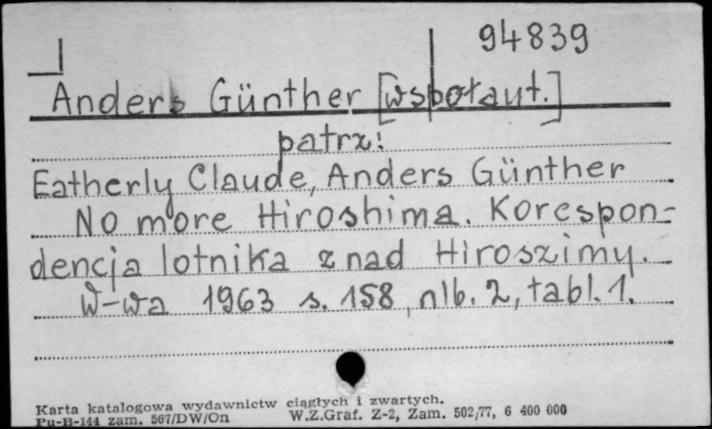 94839
Anders Günther [współaut.]
patrz:
Eatherly Claude, Anders Günther
No more Hiroshima. Korespon-
dencja lotnika z nad Hiroszimy.
W-wa 1963 s. 158, nlb. 2, tabl. 1.
Karta katalogowa wydawnictw ciągłych i zwartych.
Pu-B-144 zam. 567/DW/On W.Z.Graf. Z-2, Zam. 502/77, 6 400 000